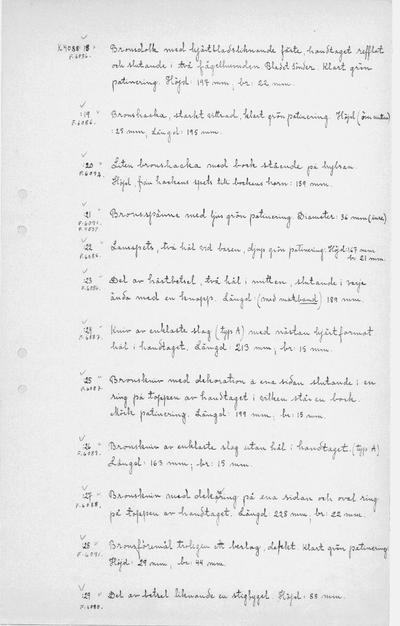 K.4088:18 " Bronsdolk med hjärtbladsliknande fäste, handtaget refflat
F.6086. och slutande i två fågelhuvuden. Bladet sönder. Klart grön
patinering. Höjd: 197 mm, br: 22 mm.
:19 " Bronshacka, starkt ertrad, klart grön patinering. Höjd
F.6086. : 25 mm, Längd: 195 mm.
:20 " Liten bronshacka med bock stående på hylsan.
Höjd, från hackens spets till bockens horn: 139 mm.
:21 " Bronsspänne med ljus grön patinering. Diameter: 36 mm
:22 " Lansspets, två hål vid basen, djup grön patinering. Höjd: 167 mm
F.6086. br 21 mm.
:23 " Del av hästbetsel, två hål i mitten, slutande i varje
ända med en knapp. Längd (med mätband) 189 mm.
:24 " Kniv av enklaste slag (typ A) med nästan hjärtformat
F.6087. hål i handtaget. Längd: 213 mm, br: 15 mm.
:25 " Bronskniv med dekoration å ena sidan slutande i en
F.6087. ring på toppen av handtaget i vilken står en bock.
Mörk patinering. Längd: 199 mm, br: 15 mm.
:26 " Bronskniv av enklaste slag utan hål i handtaget. (typ A)
F.6087. Längd: 163 mm, br: 15 mm.
:27 " Bronskniv med dekoring på ena sidan och oval ring
F.6088. på toppen av handtaget. Längd 225 mm, br: 22 mm.
:28 " Bronsföremål troligen ett beslag, defekt. Klart grön patinering
F.6091. Höjd: 29 mm, br: 44 mm.
:29 " Del av betsel liknande en stigbygel. Höjd: 88 mm.
F.6090.